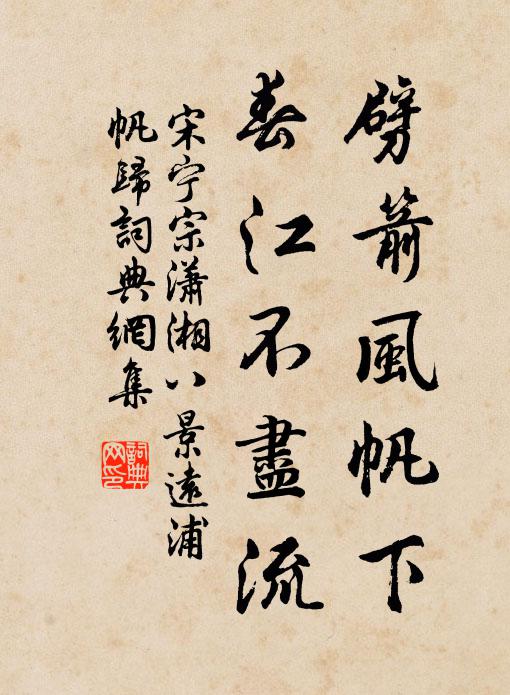 劈箭風帆下
春江不盡流
宋宁宗瀟湘八景遠浦
帆歸詞典網集
詞典
网印